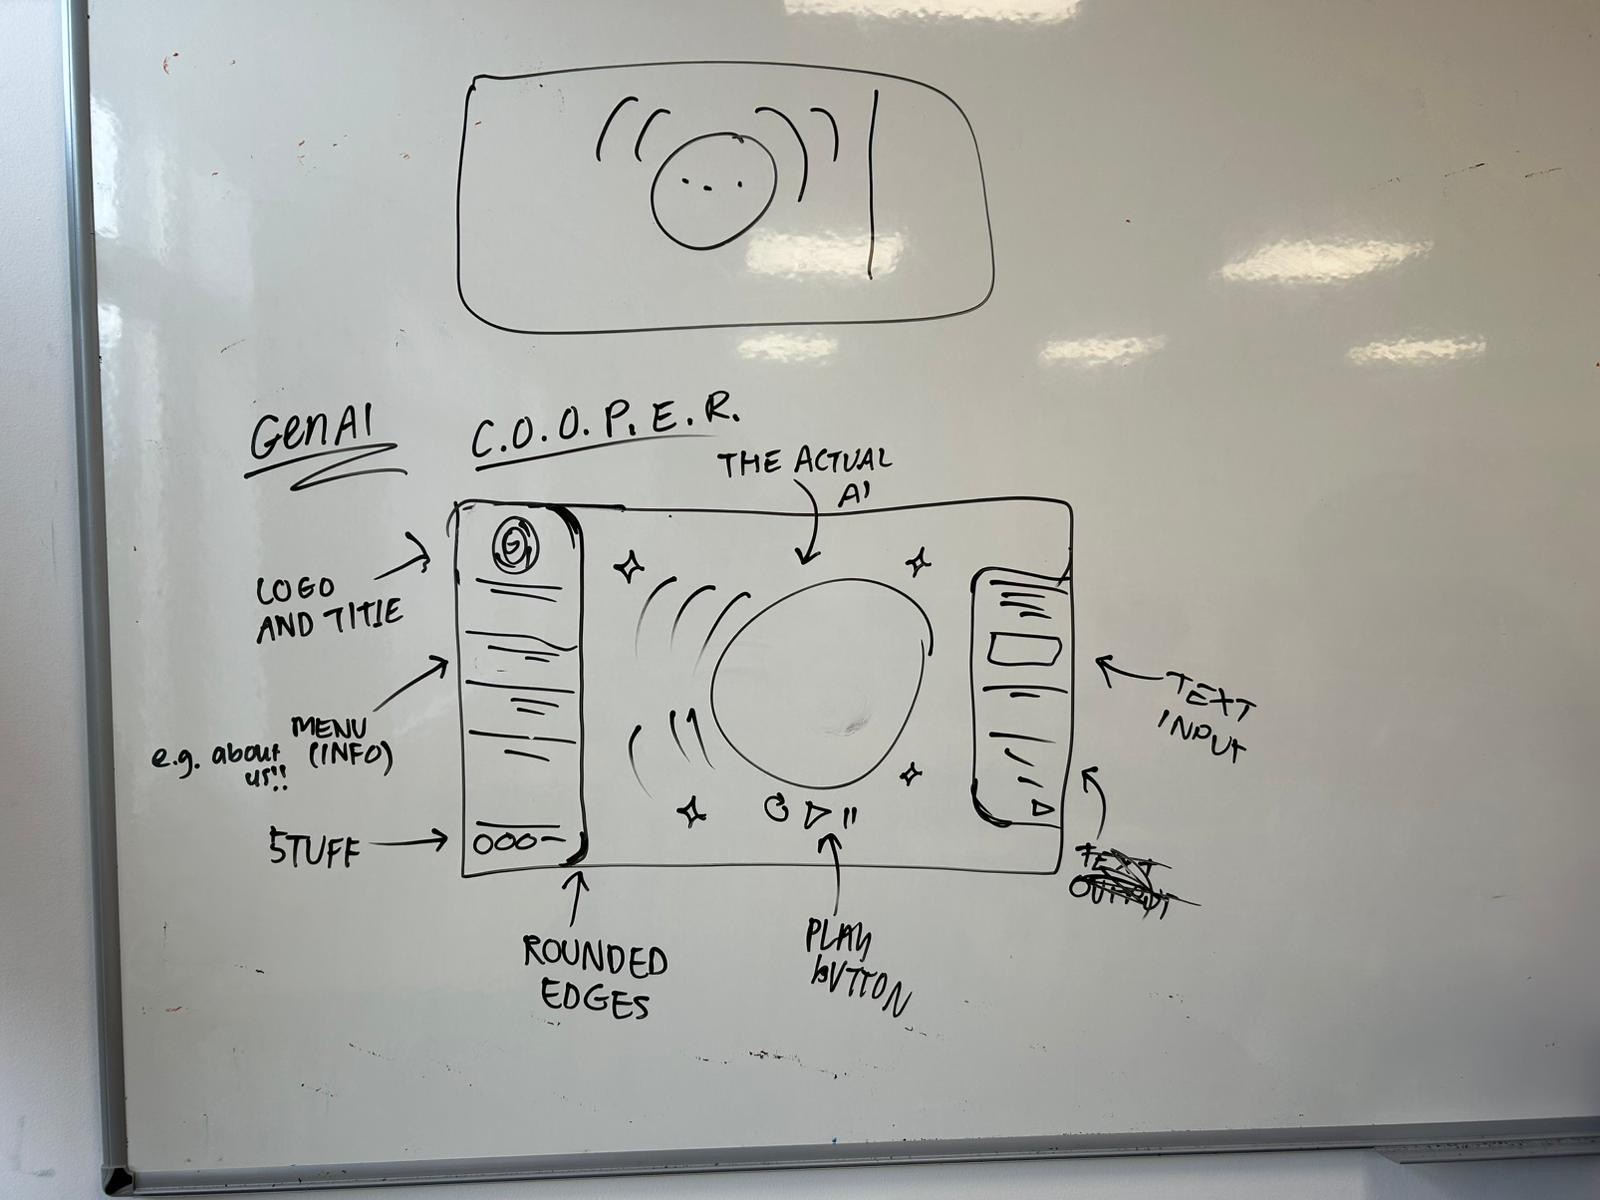 GenAI
C.O.O.P.E.R.
THE ACTUAL
AI
G
LOGO
AND TITLE
MENU
(INFO)
e.g. about
us!!
STUFF
ROUNDED
EDGES
PLAY
BUTTON
TEXT
INPUT
TEXT
OUTPUT